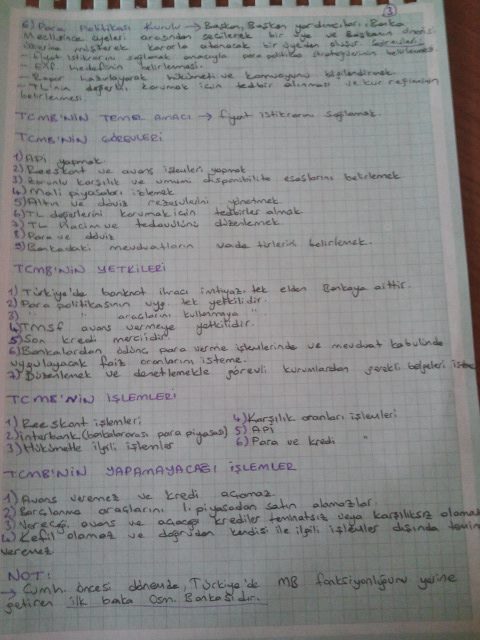 3
6) Para Politikası Kurulu → Başkan, Başkan yardımcıları, Banka
Meclisince üyeleri arasından seçilecek bir üye ve Başkanın önerisi
üzerine müşterek kararla atanacak bir üyeden oluşur. Görevleri;
- Fiyat istikrarını sağlamak amacıyla para politika stratejilerinin belirlenmesi.
- Enf. hedefinin belirlenmesi.
- Rapor hazırlayarak hükümeti ve kamuoyunu bilgilendirmek.
- TL'nin değerini korumak için tedbir alınması ve kur rejiminin
belirlenmesi.
TCMB'NİN TEMEL AMACI → fiyat istikrarını sağlamak.
TCMB'NİN GÖREVLERİ
1) APİ yapmak.
2) Reeskont ve avans işlemleri yapmak
3) Zorunlu karşılık ve umumi disponibilite esaslarını belirlemek
4) Mali piyasaları izlemek
5) Altın ve döviz rezervlerini yönetmek
6) TL değerlerini korumak için tedbirler almak.
7) TL hacim ve tedavülünü düzenlemek
8) Para ve döviz
9) Bankadaki mevduatların vade türlerini belirlemek.
TCMB'NİN YETKİLERİ
1) Türkiye'de banknot ihracı imtiyazı tek elden Bankaya aittir.
2) Para politikasının uyg. tek yetkilidir.
3) " araçlarını kullanmaya "
4) TMSF avans vermeye yetkilidir.
5) Son kredi merciidir.
6) Bankalardan ödünç para verme işlemlerinde ve mevduat kabulünde
uygulayacak faiz oranlarını isteme.
7) Düzenlemek ve denetlemekle görevli kurumlardan gerekli belgeleri isteme
TCMB'NİN İŞLEMLERİ
1) Reeskont işlemleri
2) interbank (bankalararası para piyasası)
3) Hükümetle ilgili işlemler
4) Karşılık oranları işlemleri
5) APİ
6) Para ve kredi "
TCMB'NİN YAPAMAYACAĞI İŞLEMLER
1) Avans veremez ve kredi açamaz.
2) Borçlanma araçlarını 1. piyasadan satın alamazlar.
3) Vereceği avans ve açacağı krediler teminatsız veya karşılıksız olamaz
4) Kefil olamaz ve doğrudan kendisi ile ilgili işlemler dışında temin
veremez.
NOT:
→ Cumh. öncesi dönemde, Türkiye'de MB fonksiyonluğunu yerine
getiren ilk baka Osm. Bankasıdır.